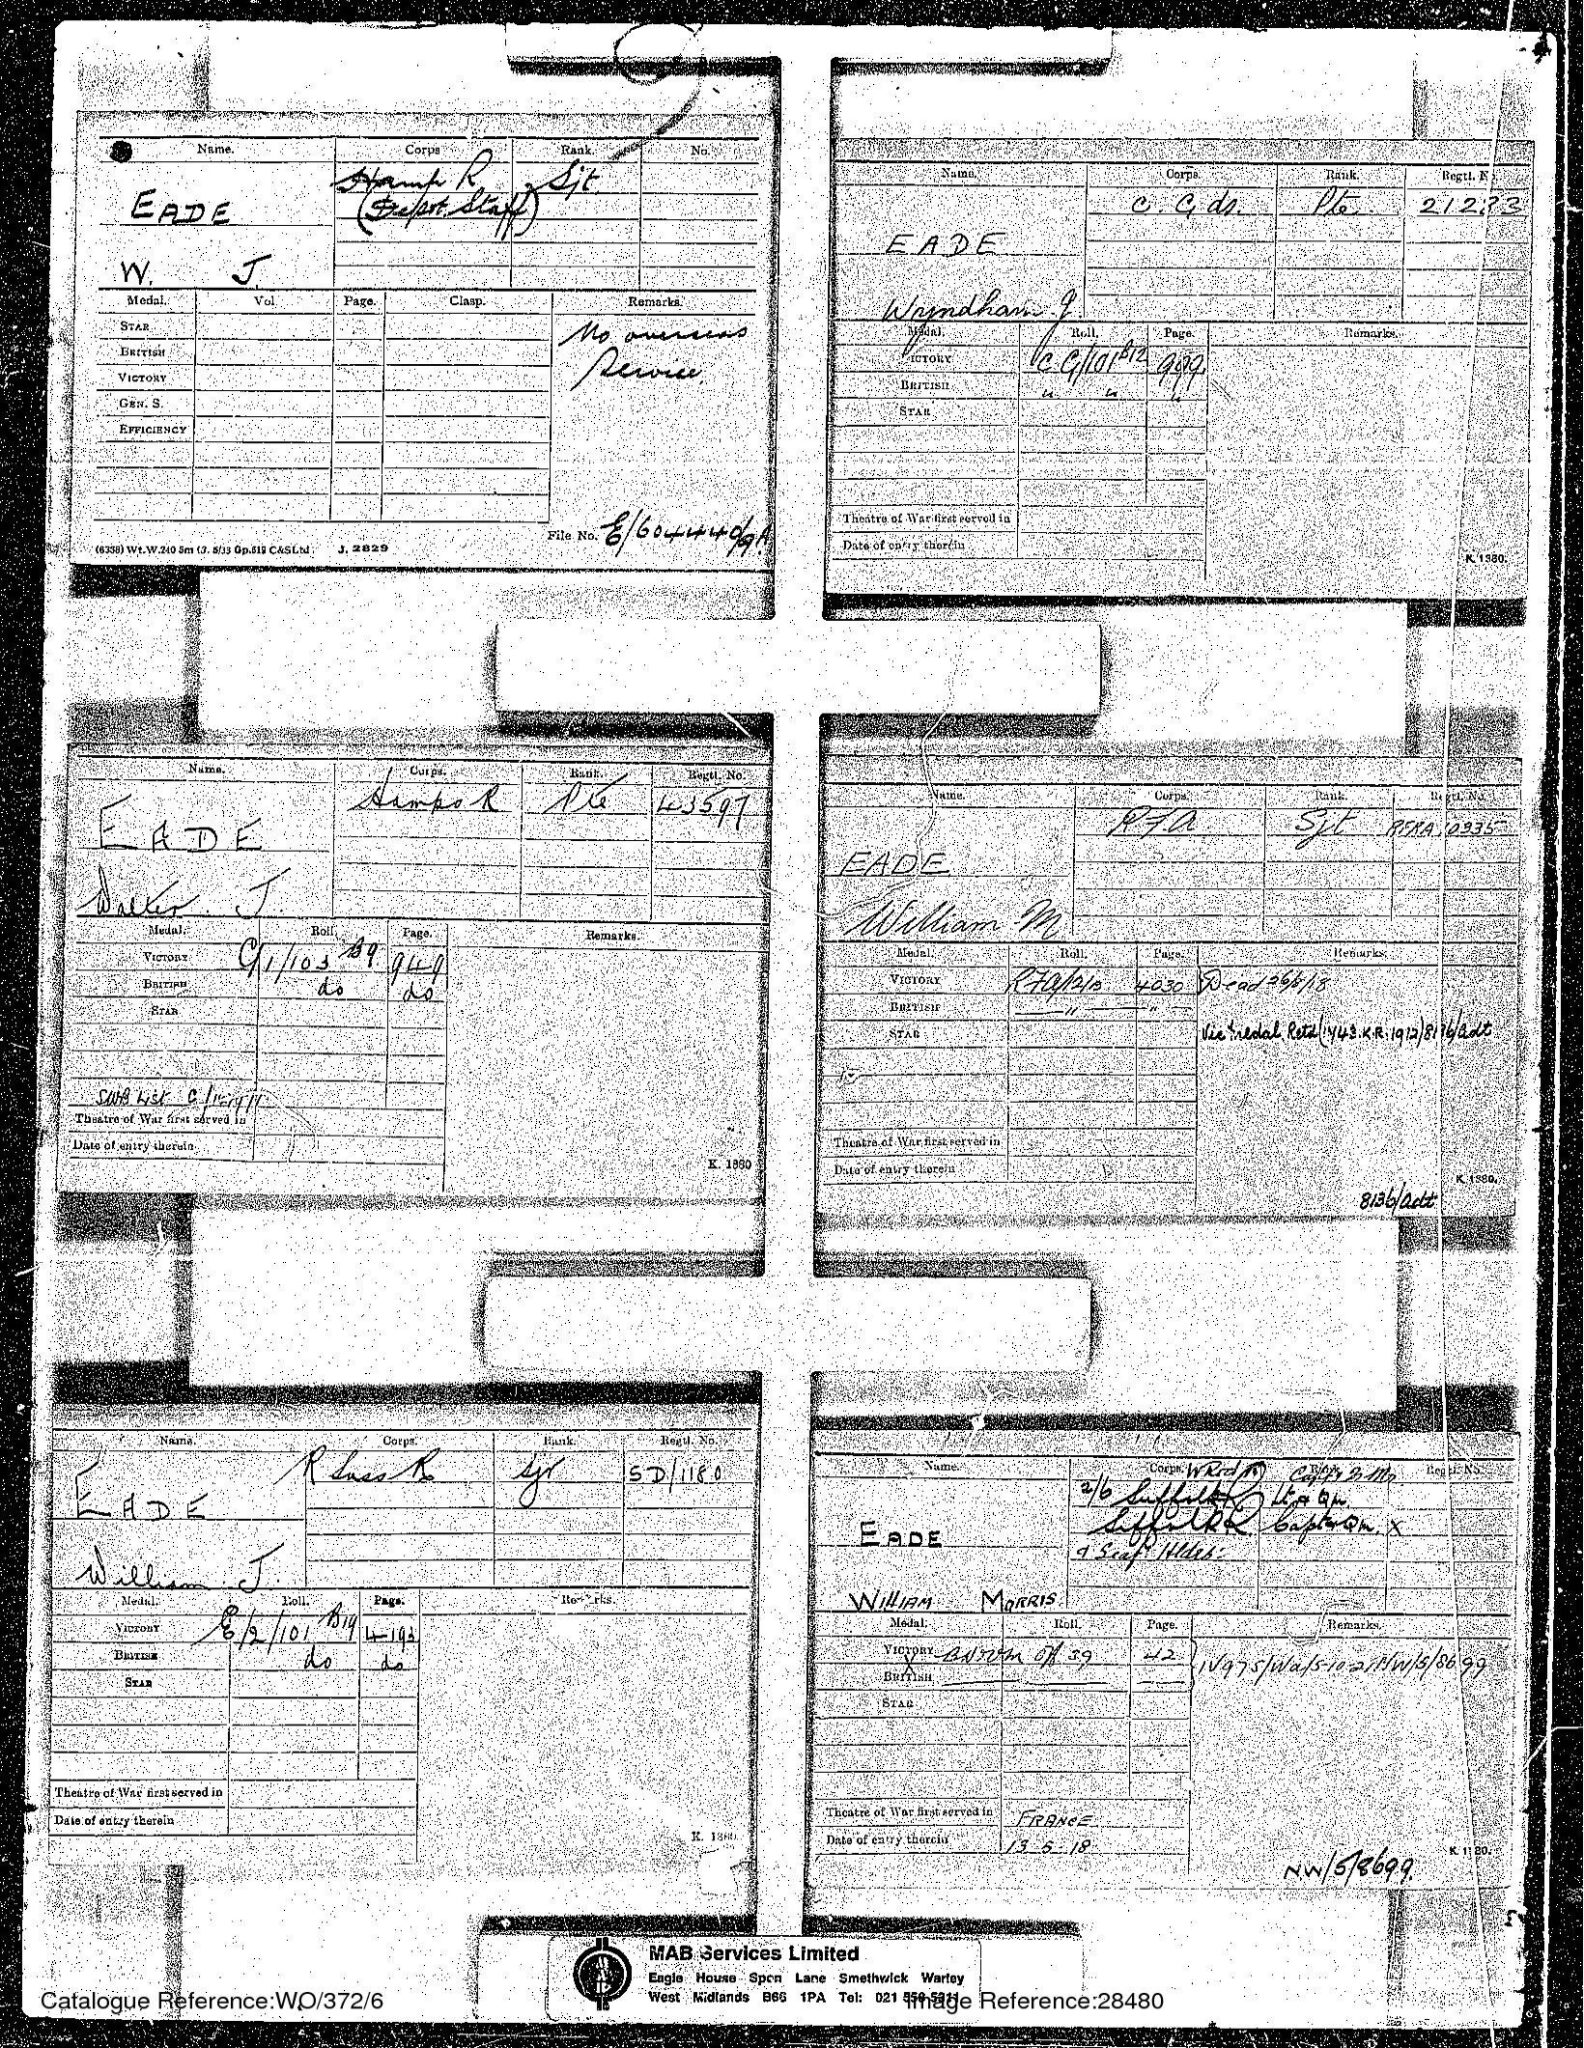 Name. Corps Rank. No.
Hamp R Sjt
(Depot Staff)
EADE
W. J.
Medal. Vol Page. Clasp. Remarks.
STAR
No overseas
BRITISH
Service.
VICTORY
GEN. S.
EFFICIENCY
File No. E/60444O/9A
(6338) Wt.W.240 5m J. 2829
Name. Corps. Rank. Regtl. No.
C. Gds. Pte
EADE
Wyndham J.
Medal. Roll. Page. Remarks.
VICTORY CG/101 B12 999.
BRITISH " " "
STAR
Theatre of War first served in
Date of entry therein
K 1380.
Name. Corps. Rank. Regtl. No.
Hamps R Pte 43597
EADE
Walter J.
Medal. Roll. Page. Remarks.
VICTORY G/1/103 B9 949
BRITISH do do
STAR
SWB List
Theatre of War first served in
Date of entry therein.
K. 1380
Name. Corps. Rank. Regtl. No.
R.F.A Sjt
EADE
William M
Medal. Roll. Page. Remarks.
VICTORY 4030 Dead 26/8/18
BRITISH " "
STAR Vic Medal Retd (1743.K.R.1912) 8136/Adt
Theatre of War first served in
Date of entry therein
K 1380.
8136/Adt
Name. Corps. Rank. Regtl. No.
R Suss R. Sjt SD/1180
EADE
William J.
Medal. Roll. Page. Remarks.
VICTORY E/2/101 B19 4193
BRITISH do do
STAR
Theatre of War first served in
Date of entry therein
K. 1380.
Name. Corps. Rank. Regtl. No.
2/6 Suffolk R Lt & Qm.
Suffolk R Capt & Qm. X
EADE
& Seaf Hldrs.
WILLIAM MORRIS
Medal. Roll. Page. Remarks.
VICTORY Off 39 42
BRITISH NW/5/8699
STAR
Theatre of War first served in FRANCE
Date of entry therein 13-5-18
NW/5/8699.
MAB Services Limited
Eagle House Spon Lane Smethwick Warley
West Midlands B66 1PA Tel: 021
Catalogue Reference:WO/372/6 Image Reference:28480